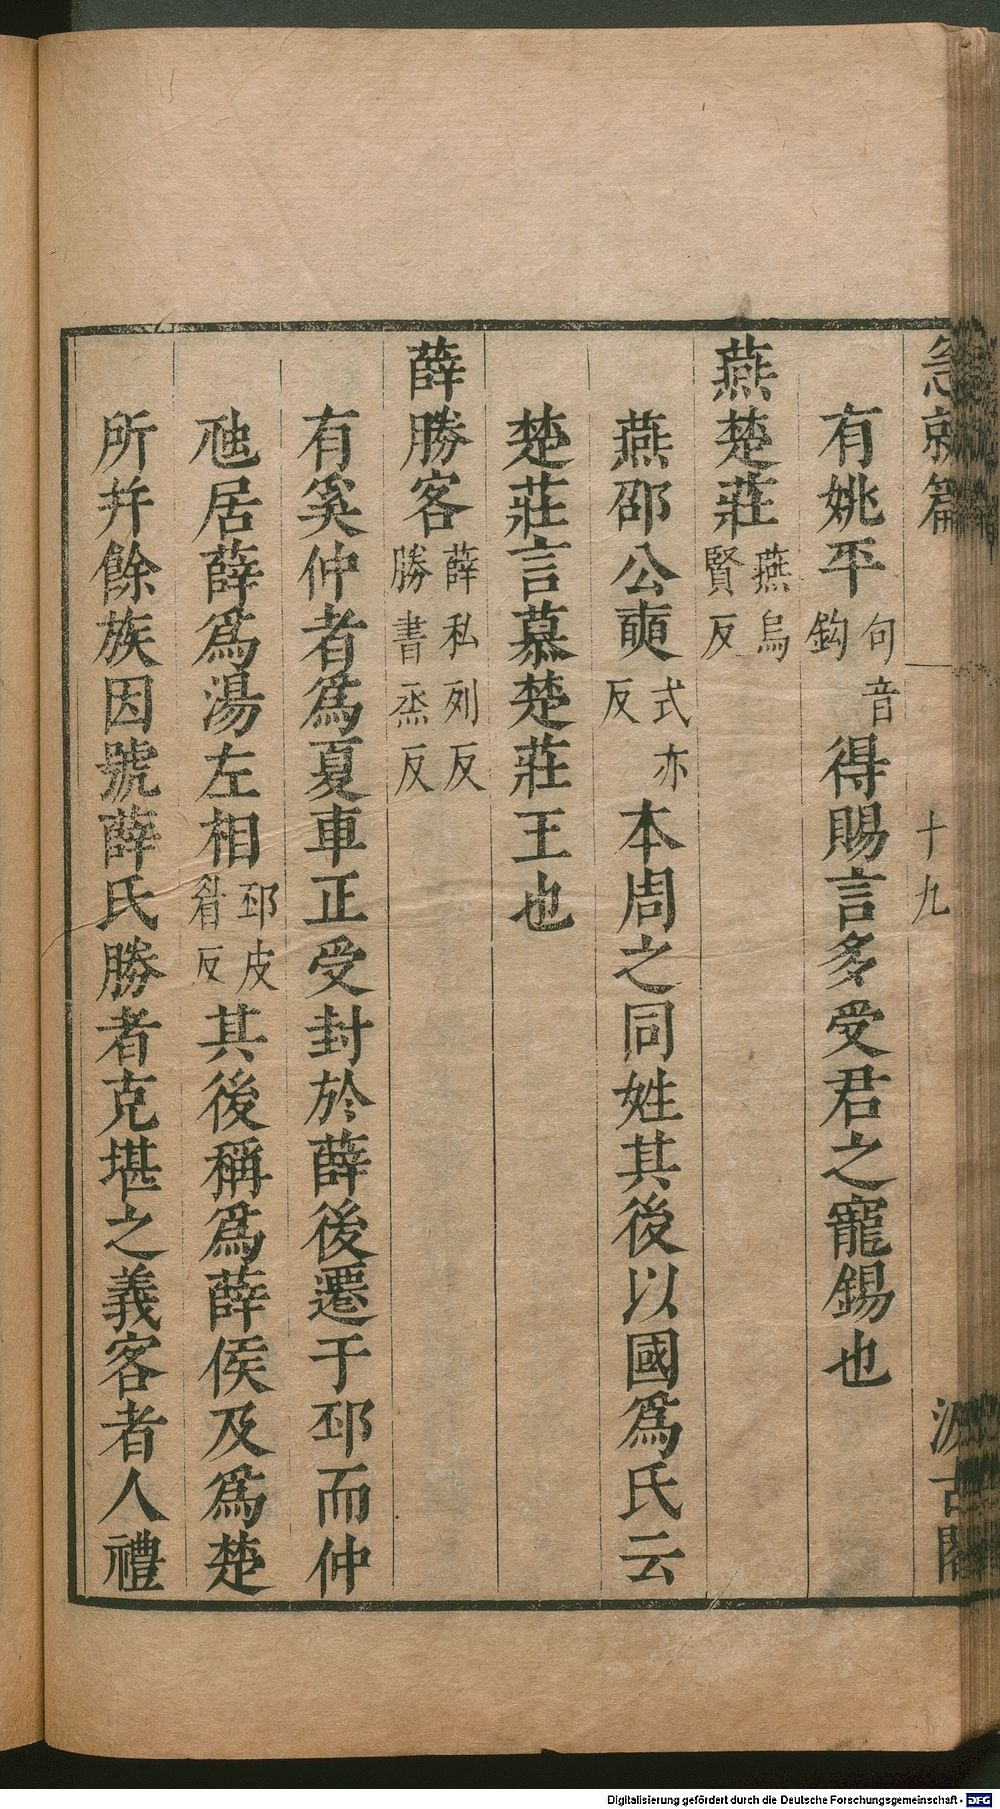 急就篇 十九 汲古閣
有姚平句音鈎得賜言多受君之寵錫也
燕楚莊燕烏賢反
燕邵公奭式亦反本周之同姓其後以國爲氏云
楚莊言慕楚莊王也
薛勝客薛私列反勝書烝反
有奚仲者爲夏車正受封於薛後遷于邳而仲
虺居薛爲湯左相邳皮眉反其後稱爲薛侯及爲楚
所并餘族因號薛氏勝者克堪之義客者人禮
Digitalisierung gefördert durch die Deutsche Forschungsgemeinschaft - DFG